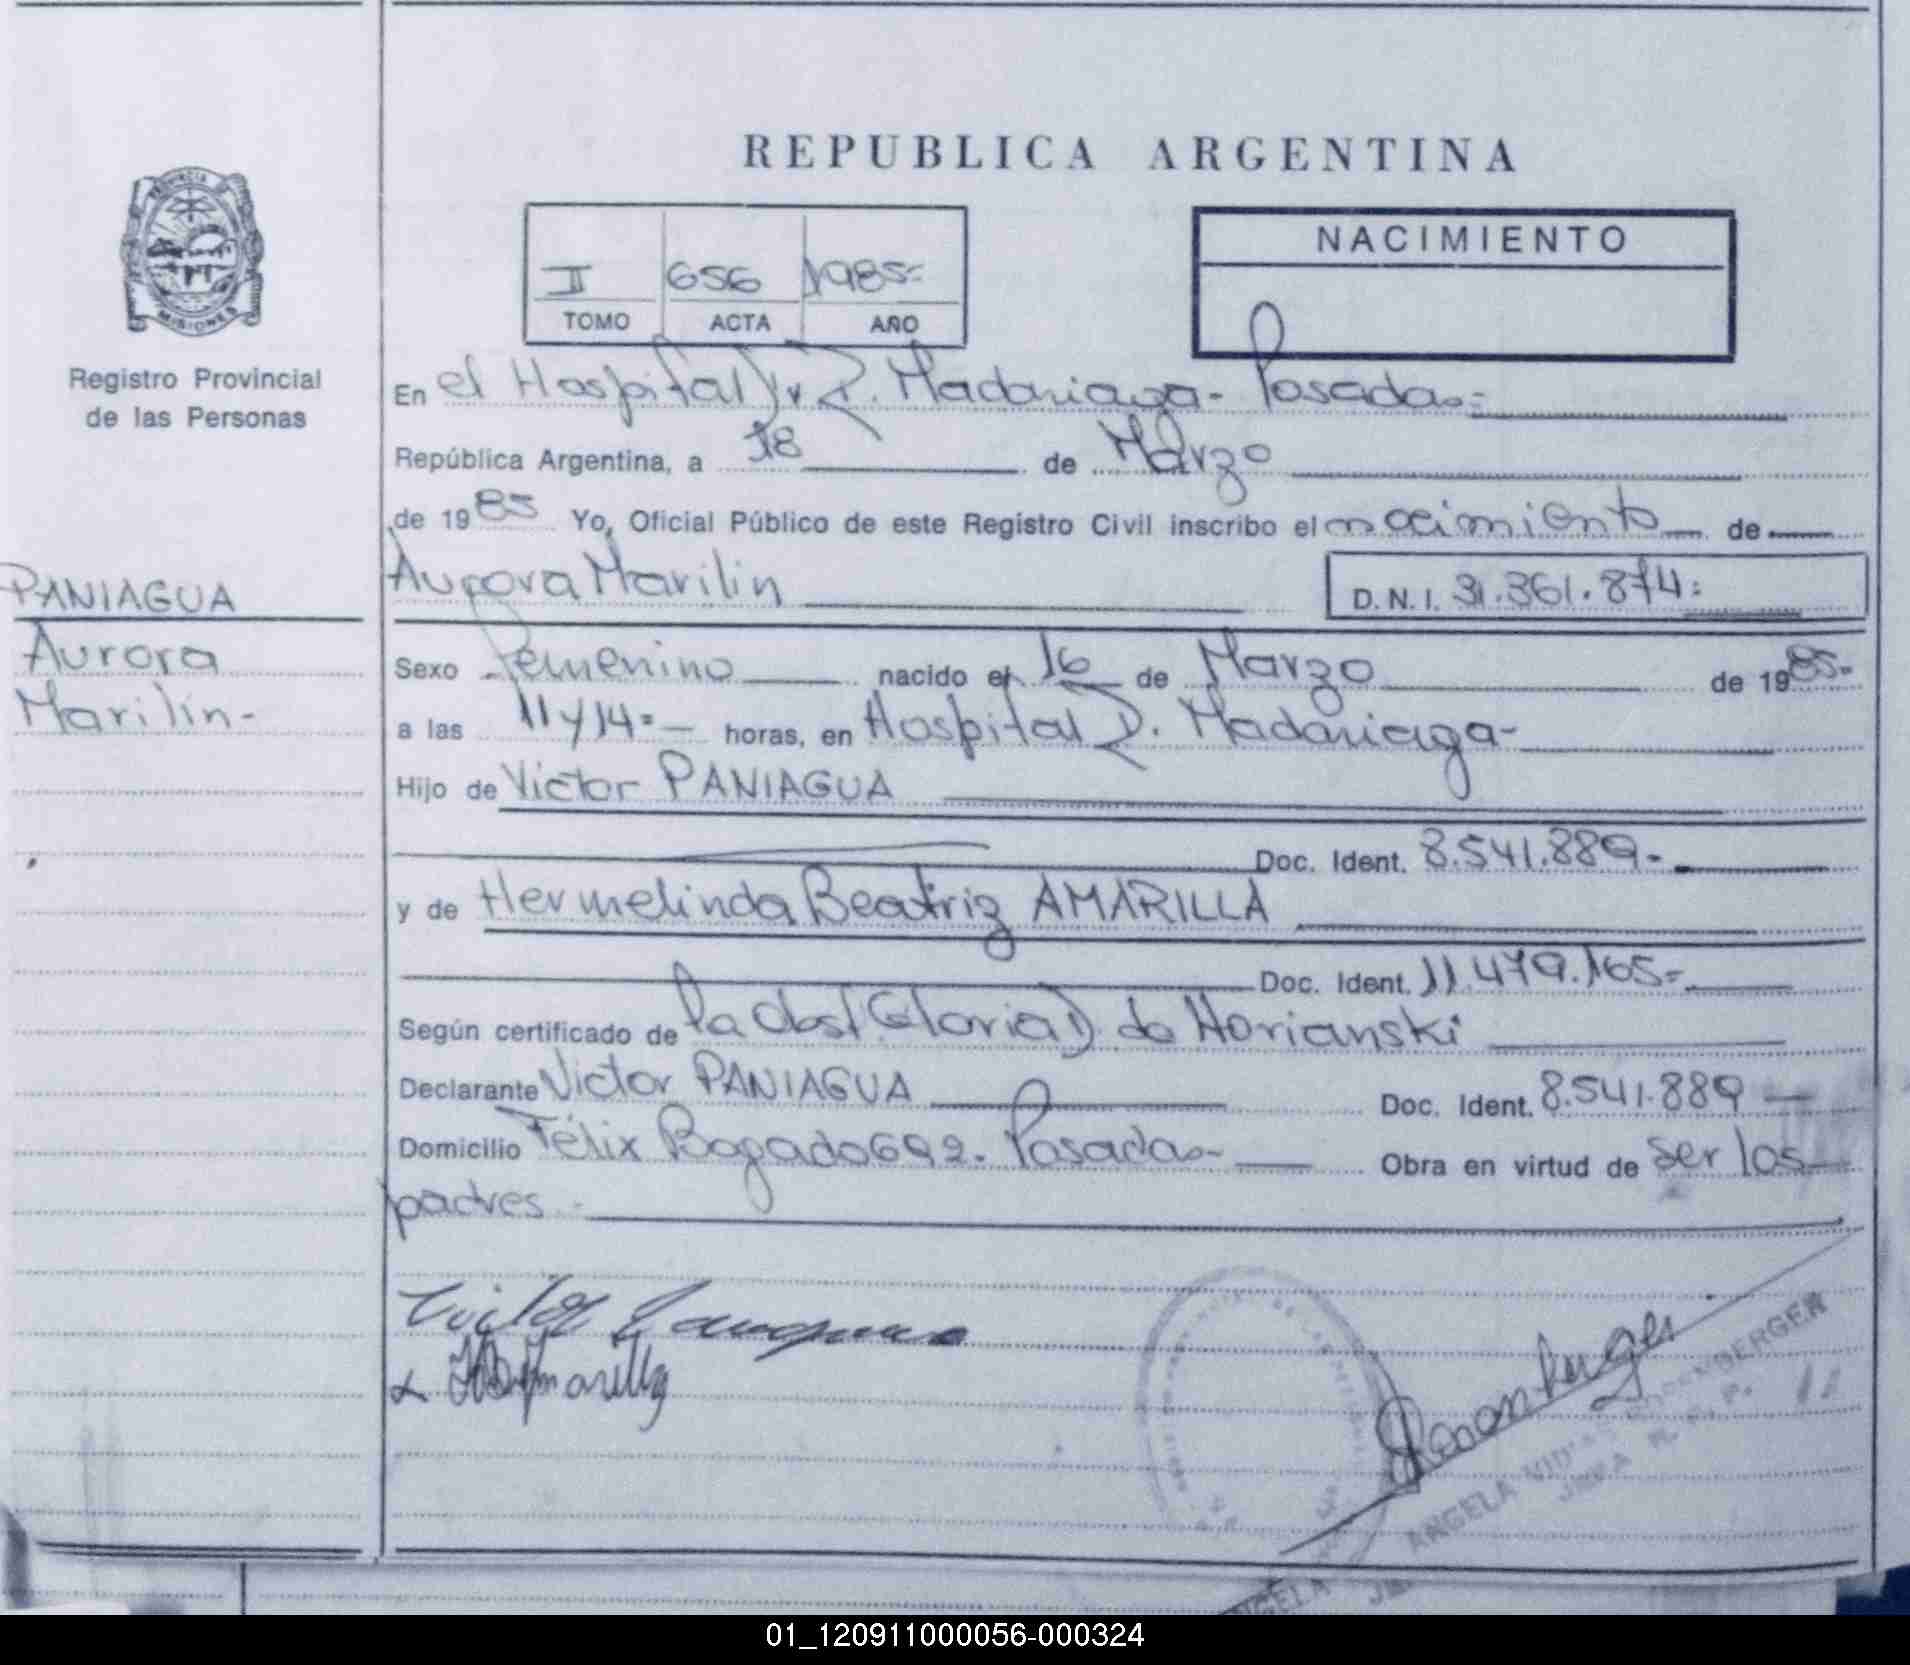 REPUBLICA ARGENTINA
PROVINCIA DE
MISIONES
Registro Provincial
de las Personas
II 656 1985-
TOMO ACTA AÑO
NACIMIENTO
En el Hospital Dr R. Madariaga- Posadas-
República Argentina, a 18 de Marzo
de 1985 Yo, Oficial Público de este Registro Civil inscribo el nacimiento de
PANIAGUA
Aurora
Marilin-
Aurora Marilin D. N. I. 31.361.874:
Sexo Femenino nacido el 16 de Marzo de 1985-
a las 11 y 14=- horas, en Hospital R. Madariaga-
Hijo de Victor PANIAGUA
Doc. Ident. 8.541.889-
y de Hermelinda Beatriz AMARILLA
Doc. Ident. 11.479.165-
Según certificado de la Obst (Gloria) de Horianski
Declarante Victor PANIAGUA Doc. Ident. 8.541.889
Domicilio Félix Bogado 692. Posadas- Obra en virtud de ser los
padres-
Victor Paniagua
HBAmarilla
ANGELA
JEFA R. P. P.
ANGELA
01_120911000056-000324